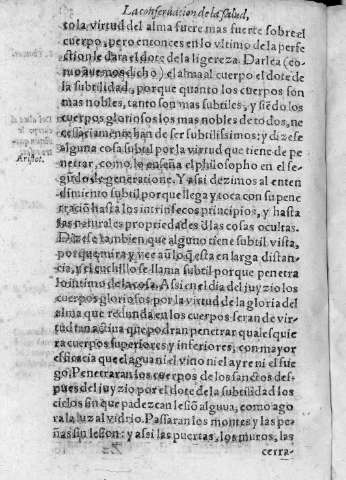 La conseruacion de la salud,
to la virtud del alma fuere mas fuerte sobre el
cuerpo, pero entonces en lo vltimo de la perfe
ction le dara el dote de la ligereza. Darle a (co
mo auemos dicho) el alma al cuerpo el dote de
la subtilidad, porque quanto los cuerpos son
mas nobles, tanto son mas subtiles, y siẽdo los
cuerpos gloriosos los mas nobles de todos, ne
cessariamente han de ser subtilissimos: y dizese
alguna cosa subtil por la virtud que tiene de pe
netrar, como lo enseña el philosopho en el se
Aristot.
gũdo de generatione. Y assi dezimos al enten
dimiento subtil porque llega y toca con su pene
tracion hasta los intrinsecos principios, y hasta
las naturales propriedades d̃ las cosas ocultas.
Dizese tambien que alguno tiene subtil vista,
porque mira y vee aũ lo q̃ esta en larga distan-
cia, y el cuchillo se llama subtil porque penetra
lo intimo de la cosa. Assi en el dia del juyzio los
cuerpos gloriosos por la virtud de la gloria del
alma que redunda en los cuerpos seran de vir-
tud tan actiua que podran penetrar qualesquie
ra cuerpos superiores y inferiores, con mayor
efficacia que el agua ni el vino ni el ayre ni el fue
go. Penetraran los cuerpos de los sanctos des-
pues del juyzio por el dote de la subtilidad los
cielos sin que padezcan lesiõ alguna, como ago
ra la luz al vidrio. Passaran los montes y las pe
ñas sin lesion: y assi las puertas, los muros, las
cerra-